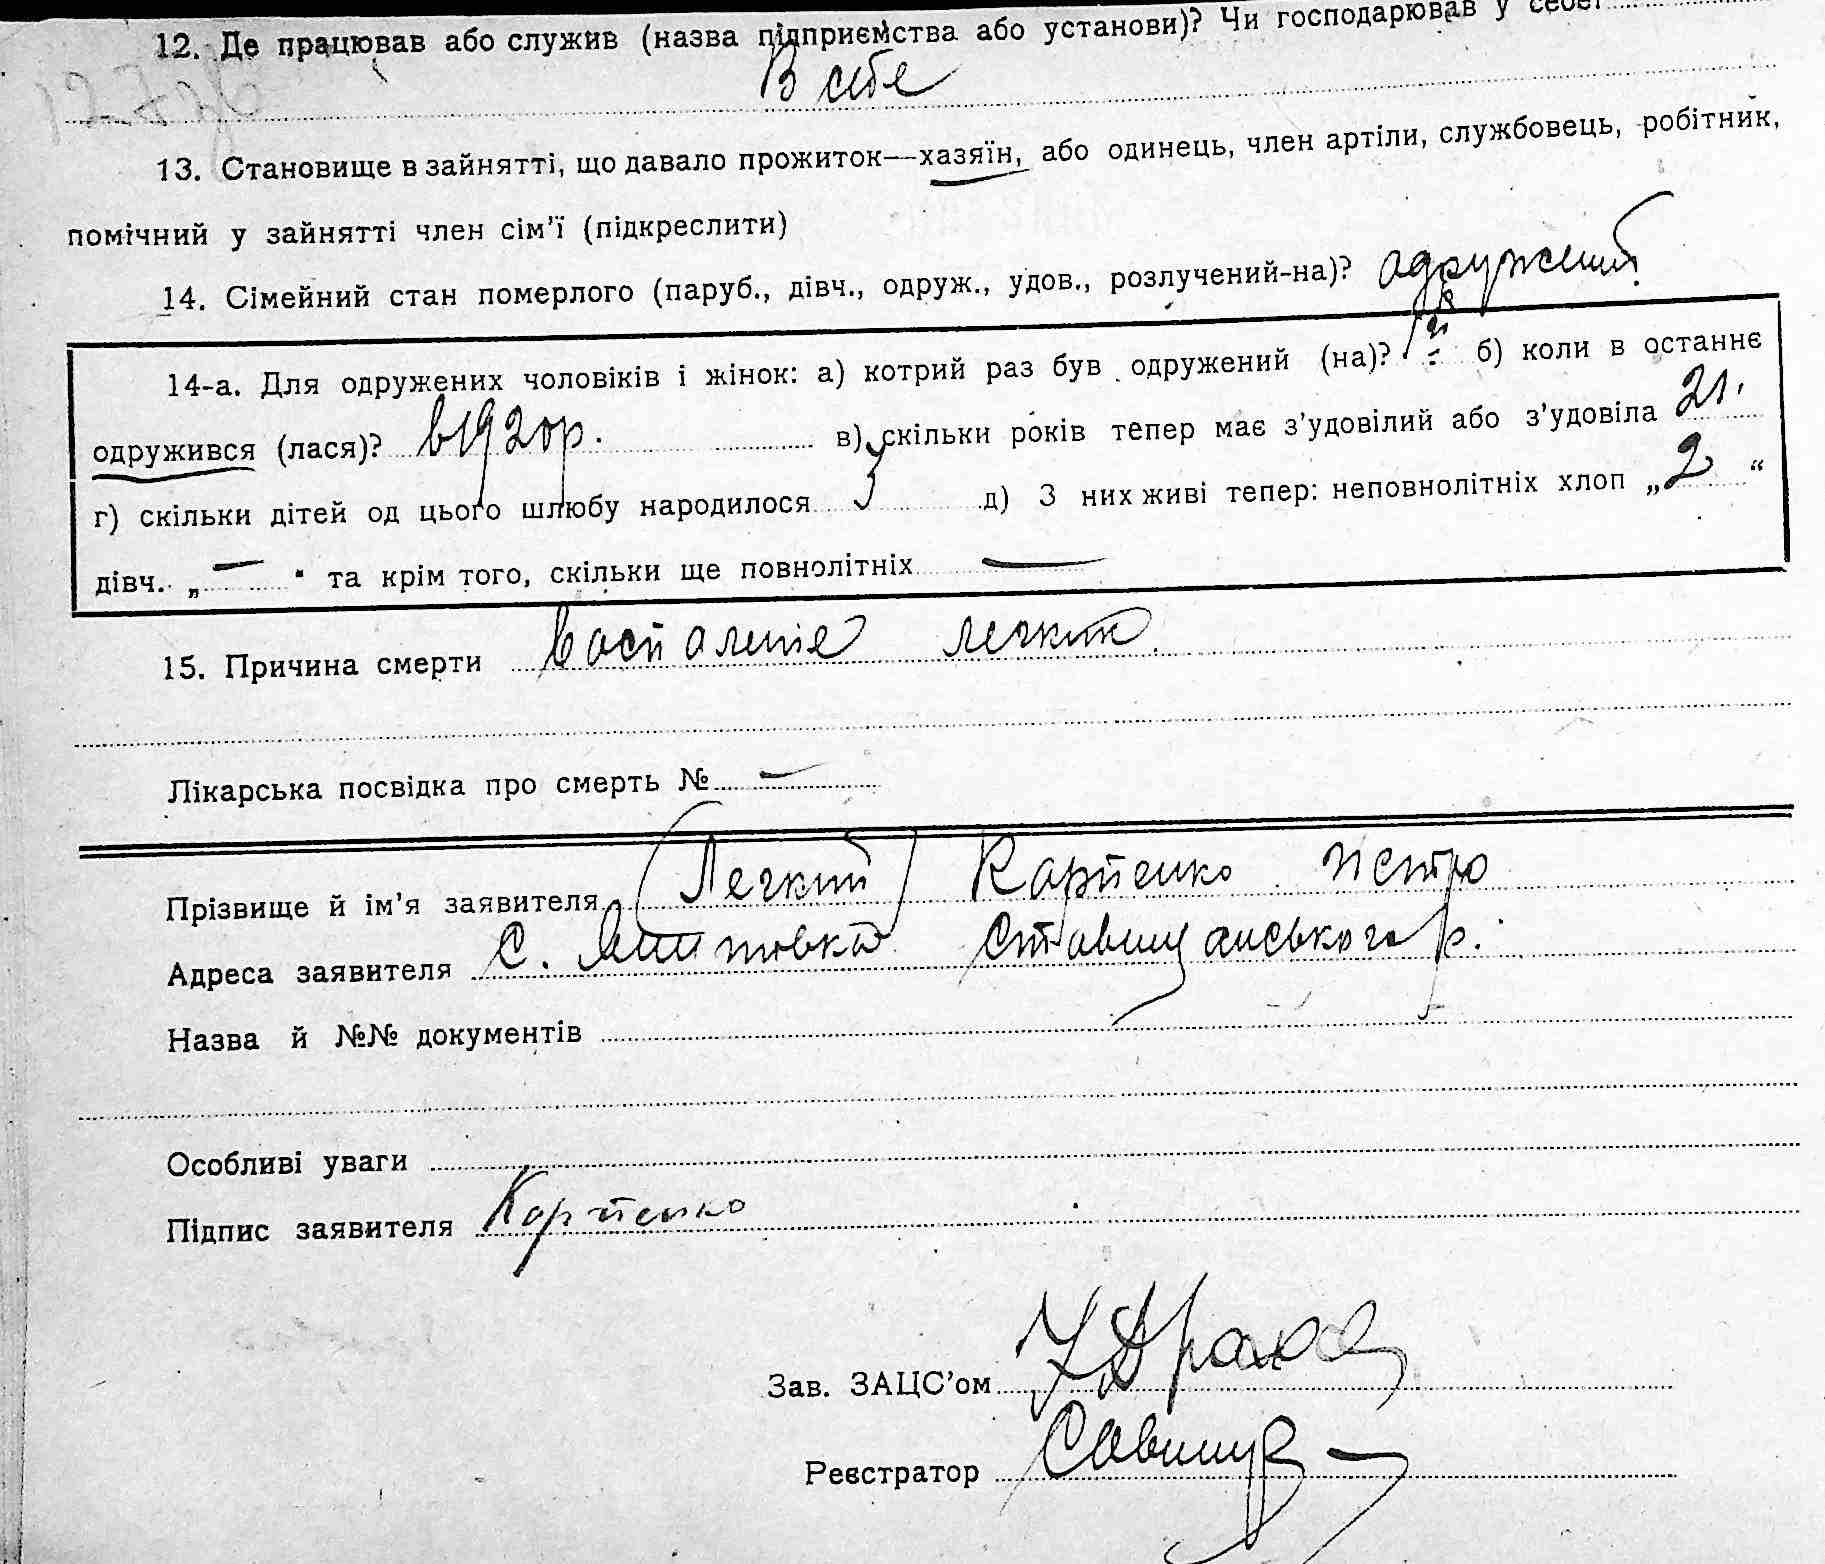 12. Де працював або служив (назва підприємства або установи)? Чи господарював у себе?
В себе
13. Становище в зайнятті, що давало прожиток—хазяїн, або одинець, член артіли, службовець, робітник,
помічний у зайнятті член сім'ї (підкреслити)
14. Сімейний стан померлого (паруб., дівч., одруж., удов., розлучений-на)? одружений
14-а. Для одружених чоловіків і жінок: а) котрий раз був одружений (на)? б) коли в останнє
одружився (лася)? в 1920 р. в) скільки років тепер має з'удовілий або з'удовіла
г) скільки дітей од цього шлюбу народилося 3 д) З них живі тепер: неповнолітніх хлоп „2“
дівч. „—“ та крім того, скільки ще повнолітніх —
15. Причина смерти воспаленіе легких
Лікарська посвідка про смерть № —
Прізвище й ім'я заявителя (Легкий) Карпенко Петро
Адреса заявителя С. Ставищанського р.
Назва й №№ документів
Особливі уваги
Підпис заявителя Карпенко
Зав. ЗАЦС'ом
Реєстратор